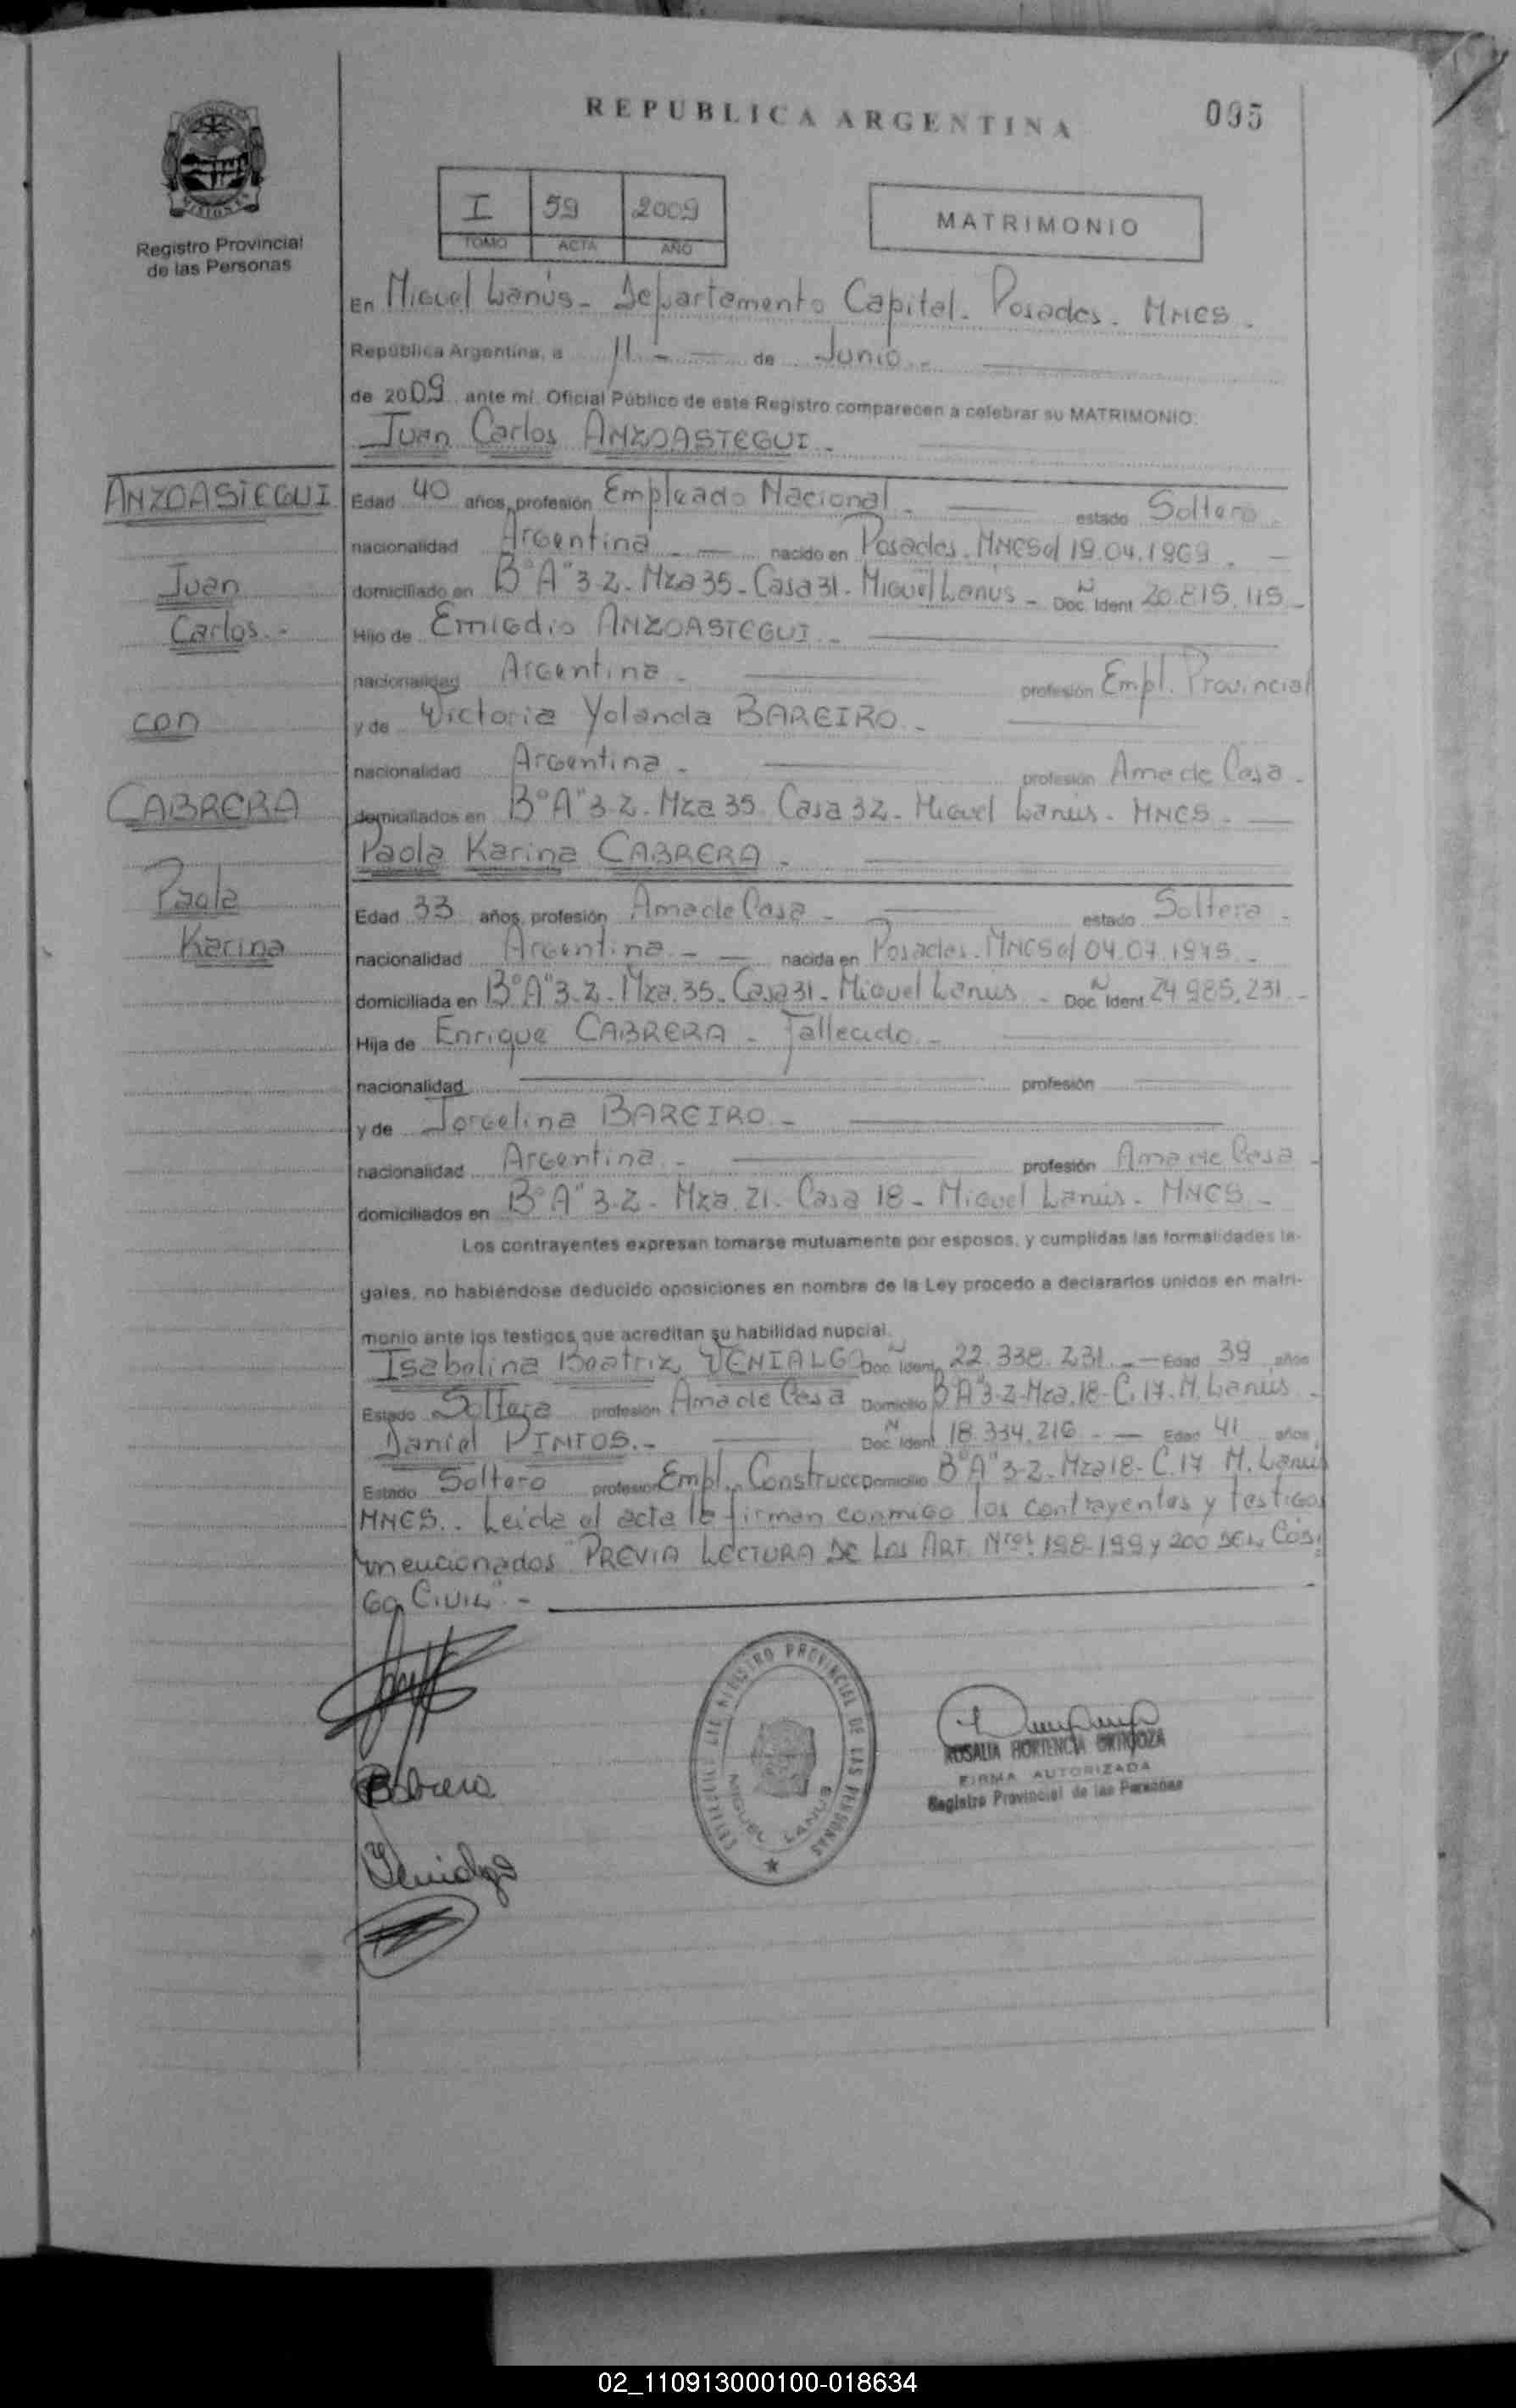 REPUBLICA ARGENTINA
095
Registro Provincial
de las Personas
I 59 2009
TOMO ACTA AÑO
MATRIMONIO
En Miguel Lanús - Departamento Capital - Posadas - MNES -
República Argentina, a 11 - de Junio -
de 2009 ante mí, Oficial Público de este Registro comparecen a celebrar su MATRIMONIO:
Juan Carlos ANZOASTEGUI -
ANZOASTEGUI
Juan
Carlos -
con
CABRERA
Paola
Karina
Edad 40 años, profesión Empleado Nacional - estado Soltero -
nacionalidad Argentina - nacido en Posadas - MNES el 19.04.1969 -
domiciliado en B° "A" 3-2 - Mza 35 - Casa 31 - Miguel Lanús - Doc. Ident. N 20.815.115 -
Hijo de Emigdio ANZOASTEGUI -
nacionalidad Argentina - profesión Empl. Provincial
y de Victoria Yolanda BAREIRO -
nacionalidad Argentina - profesión Ama de Casa -
domiciliados en B° "A" 3-2 - Mza 35 - Casa 32 - Miguel Lanús - MNES -
Paola Karina CABRERA -
Edad 33 años, profesión Ama de Casa - estado Soltera -
nacionalidad Argentina - nacida en Posadas - MNES el 04.07.1975 -
domiciliada en B° "A" 3-2 - Mza. 35 - Casa 31 - Miguel Lanús - Doc. Ident. N 24.985.231 -
Hija de Enrique CABRERA - Fallecido -
nacionalidad profesión
y de Jorgelina BAREIRO -
nacionalidad Argentina - profesión Ama de Casa -
domiciliados en B° "A" 3-2 - Mza. 21 - Casa 18 - Miguel Lanús - MNES -
Los contrayentes expresan tomarse mutuamente por esposos, y cumplidas las formalidades le-
gales, no habiéndose deducido oposiciones en nombre de la Ley procedo a declararlos unidos en matri-
monio ante los testigos que acreditan su habilidad nupcial.
Isabelina Beatriz VENIALGO Doc. Ident. N 22.338.231 - Edad 39 años
Estado Soltera profesión Ama de Casa Domicilio B° "A" 3-2 - Mza. 18 - C. 17 - M. Lanús -
Daniel PINTOS - Doc. Ident. N 18.334.216 - Edad 41 años
Estado Soltero profesión Empl. Construcc Domicilio B° "A" 3-2 - Mza 18 - C. 17 M. Lanús
MNES.. Leída el acta la firman conmigo los contrayentes y testigos
mencionados "PREVIA LECTURA DE LOS ART. Nros: 198-199 y 200 DEL CÓDI
GO CIVIL" -
REGISTRO PROVINCIAL DE LAS PERSONAS
MIGUEL LANUS
ROSALIA HORTENCIA ORTIGOZA
FIRMA AUTORIZADA
Registro Provincial de las Personas
Cabrera
Venialgo
02_110913000100-018634